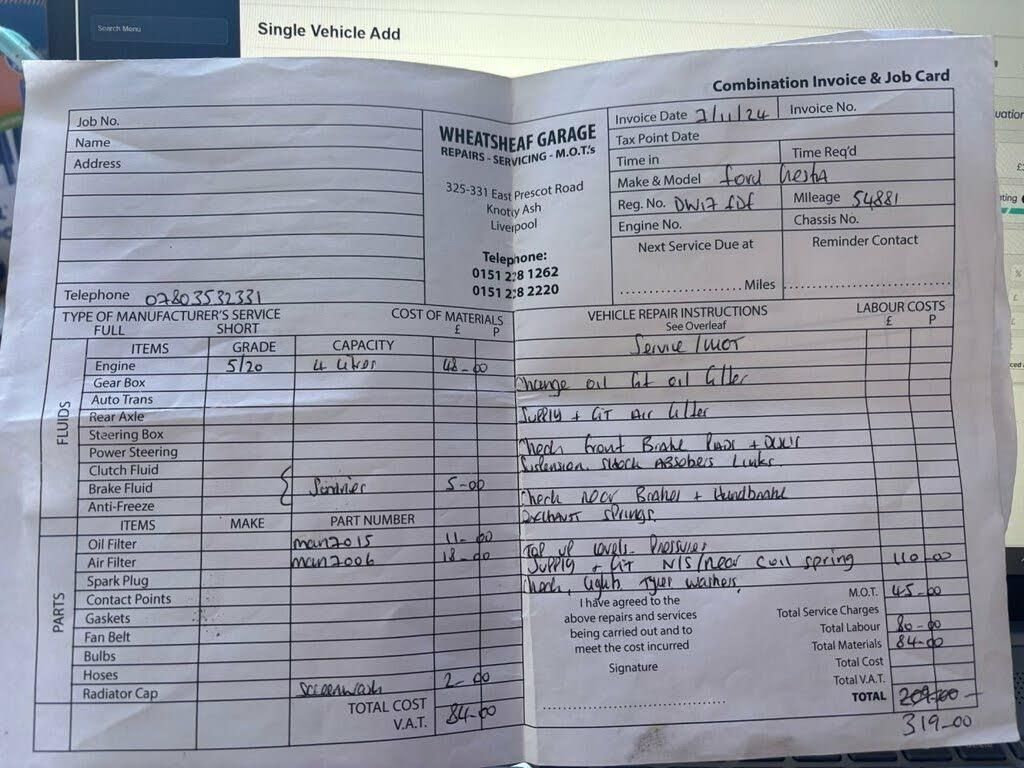 Search Menu
Single Vehicle Add
Combination Invoice & Job Card
Job No.
Name
Address
Telephone 07803532331
WHEATSHEAF GARAGE
REPAIRS - SERVICING - M.O.T.'s
325-331 East Prescot Road
Knotty Ash
Liverpool
Telephone:
0151 228 1262
0151 228 2220
Invoice Date 7/11/24 Invoice No.
Tax Point Date
Time in Time Req'd
Make & Model ford fiesta
Reg. No. DW17 fDf Mileage 54881
Engine No. Chassis No.
Next Service Due at Reminder Contact
Miles
TYPE OF MANUFACTURER'S SERVICE COST OF MATERIALS
FULL SHORT £ P
ITEMS GRADE CAPACITY
FLUIDS
Engine 5/20 4 litres 48-00
Gear Box
Auto Trans
Rear Axle
Steering Box
Power Steering
Clutch Fluid
Brake Fluid Sundries 5-00
Anti-Freeze
ITEMS MAKE PART NUMBER
PARTS
Oil Filter man7015 11-00
Air Filter man7006 18-00
Spark Plug
Contact Points
Gaskets
Fan Belt
Bulbs
Hoses
Radiator Cap screenwash 2-00
TOTAL COST
V.A.T. 84-00
VEHICLE REPAIR INSTRUCTIONS LABOUR COSTS
See Overleaf £ P
Service/MOT
Change oil fit oil filter
Supply + fit Air filter
Check front Brake Pads + Discs
Suspension shock Absobers Links
Check rear Brakes + Handbrake
Exhaust springs.
Top up levels. Pressures
Supply + fit N/S/near coil spring 110-00
Check, lights Tyres washers,
I have agreed to the
above repairs and services
being carried out and to
meet the cost incurred
Signature
M.O.T. 45-00
Total Service Charges
Total Labour 80-00
Total Materials 84-00
Total Cost
Total V.A.T.
TOTAL 209-00
319-00